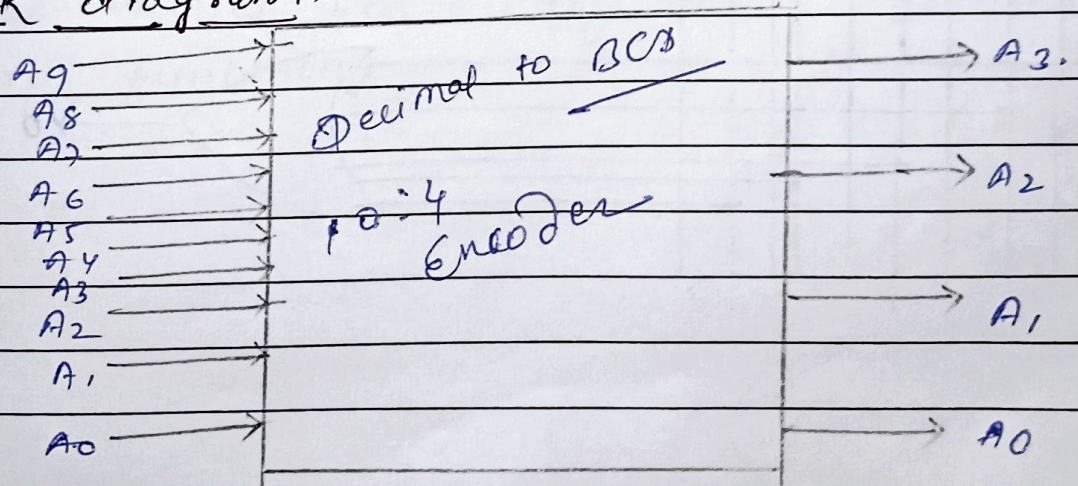 diagram.
A9
A8
A7
A6
A5
A4
A3
A2
A1
A0
Decimal to BCD
10:4
Encoder
A3.
A2
A1
A0